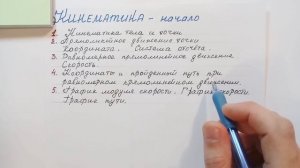 Кинематика - начало
1. Кинематика тела и точки
2. Прямолинейное движение точки
Координата. Система отсчёта.
3. Равномерное прямолинейное движение
Скорость.
4. Координаты и пройденный путь при
равномерном прямолинейном движении.
5. График модуля скорости. График скорости
График пути.